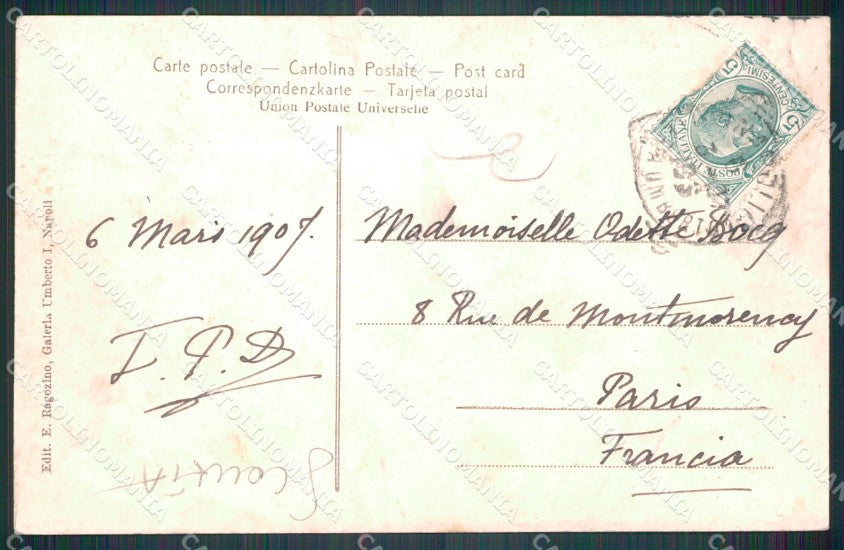 Carte postale — Cartolina Postale — Post card
Correspondenzkarte — Tarjeta postal
Union Postale Universelle
CENTESIMI 5
POSTE ITALIANE
6 Mars 1907.
Mademoiselle Odette Bocq
8 Rue de Montmorency
Paris
Francia
Edit. E. Ragozino, Galeria Umberto I, Napoli
CARTOLINOMANIA